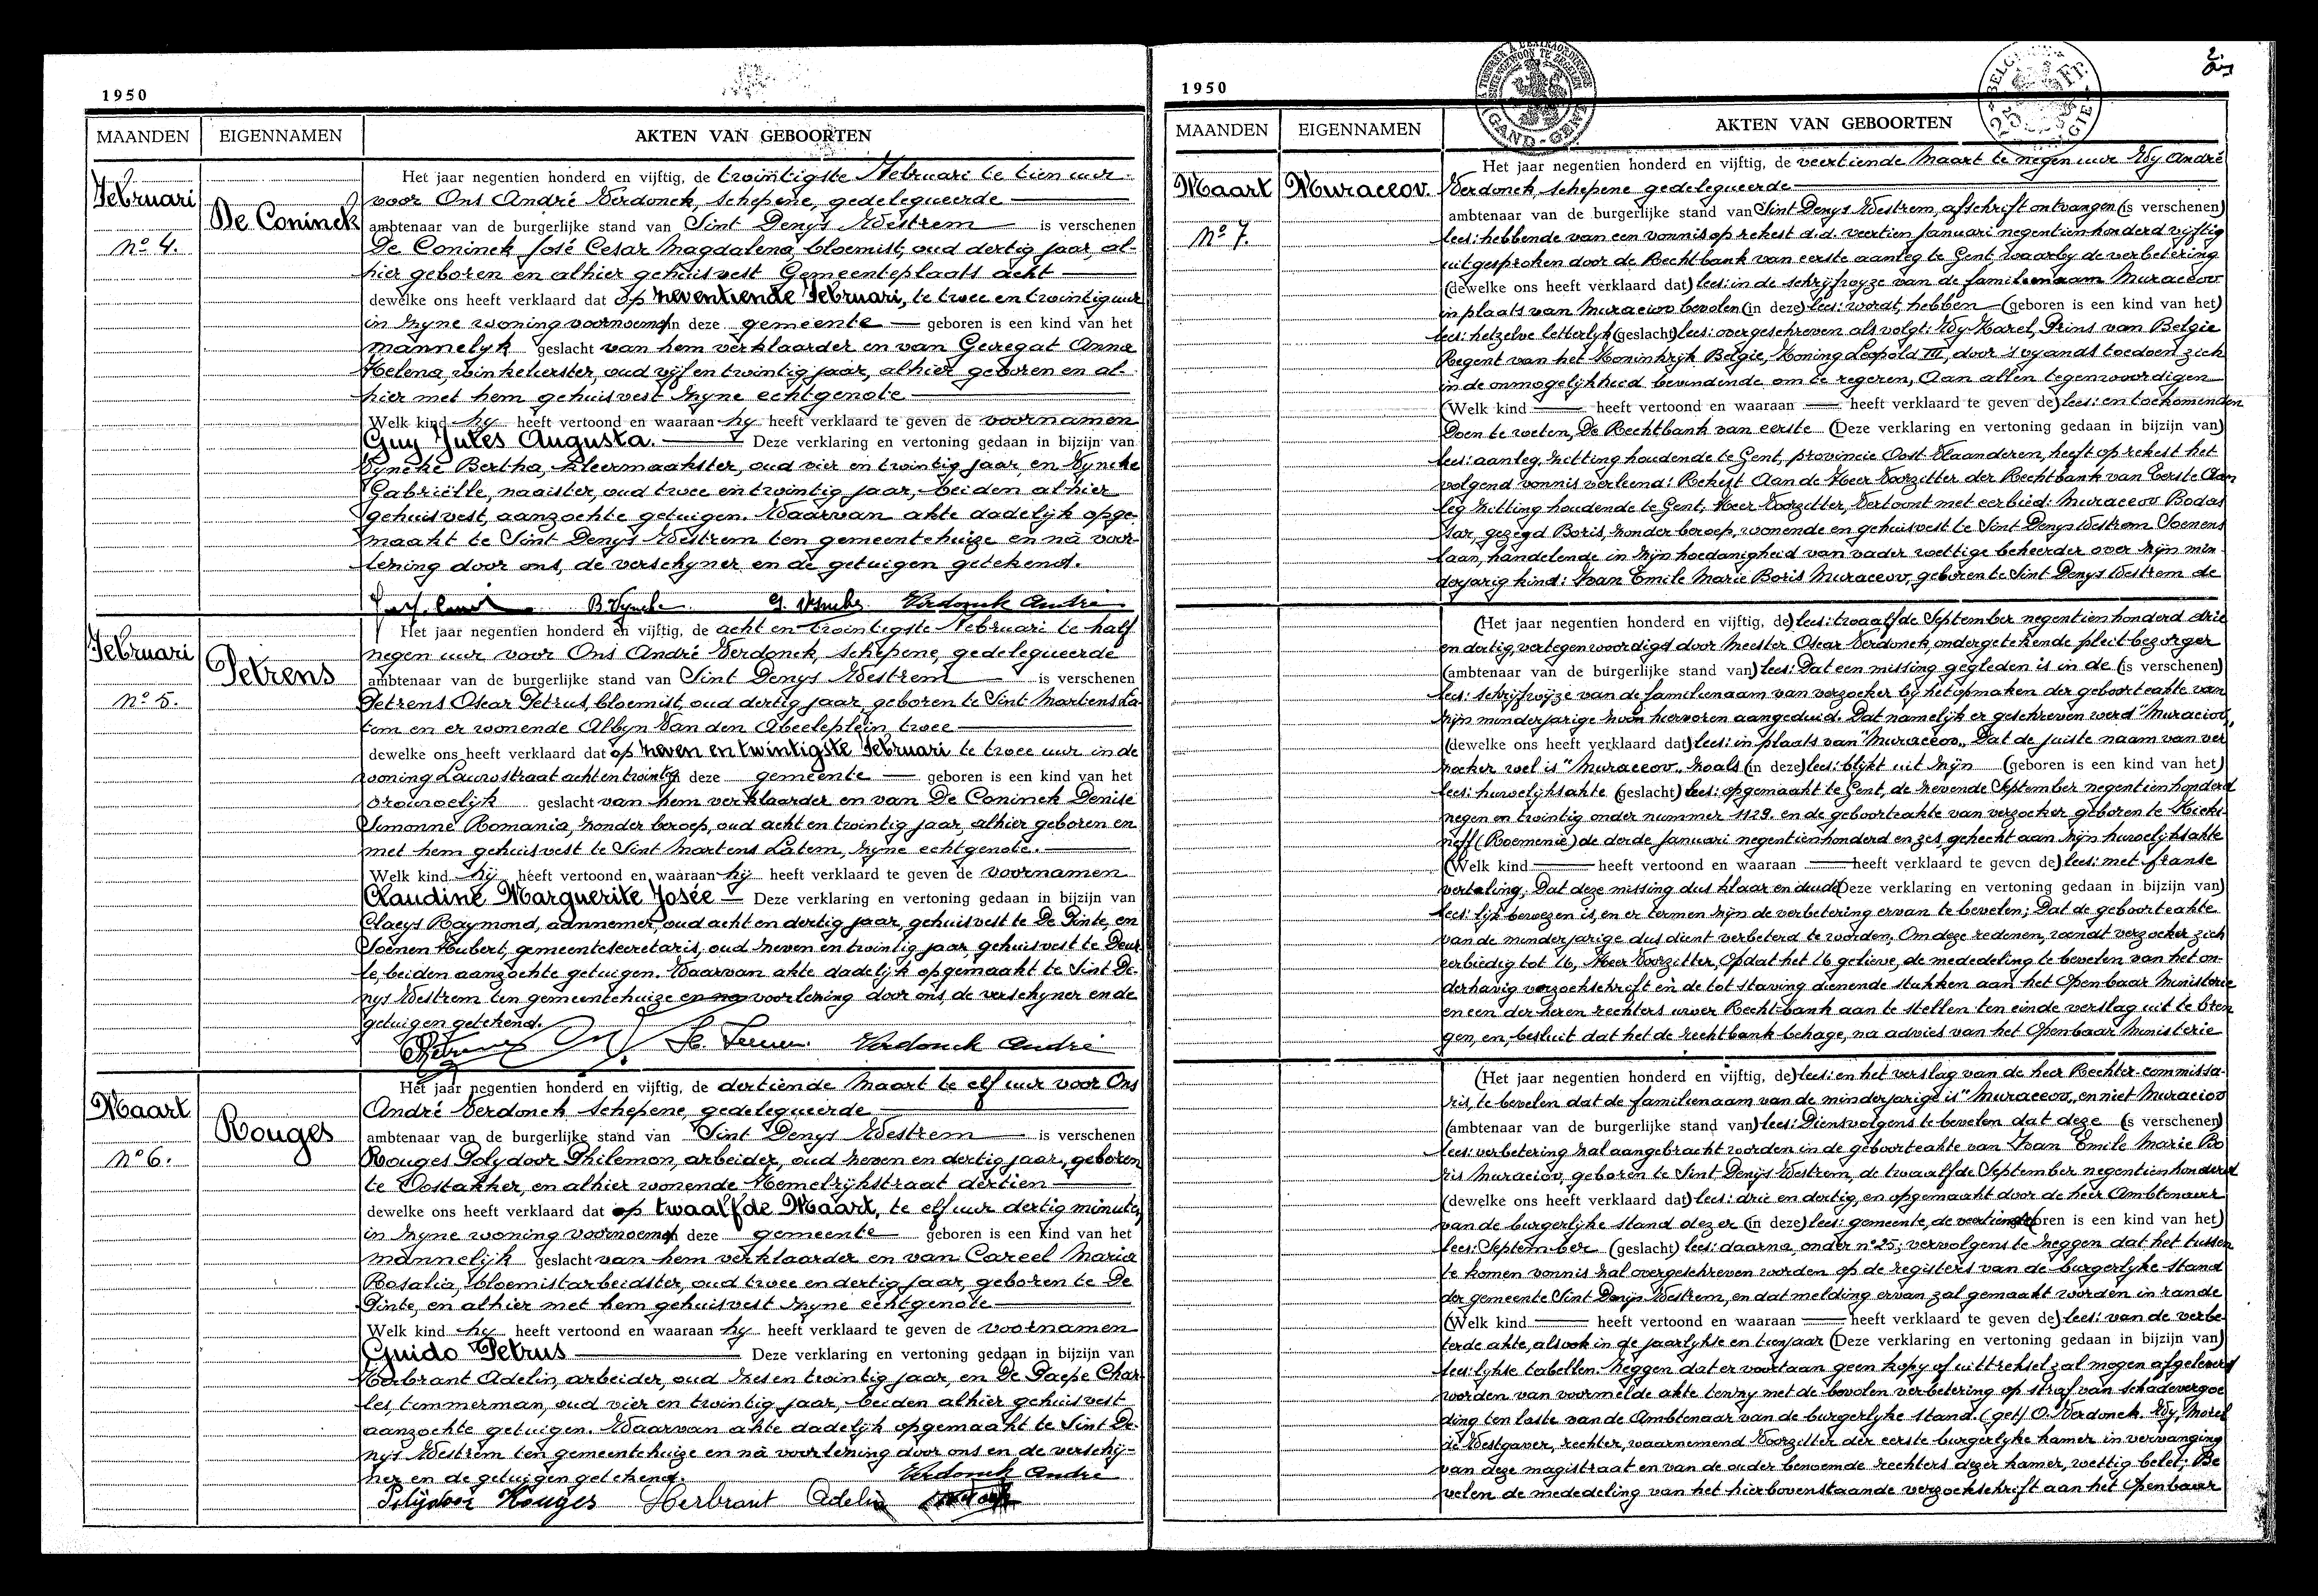 1950
MAANDEN EIGENNAMEN AKTEN VAN GEBOORTEN
Februari
De Coninck
No 4.
Het jaar negentien honderd en vijftig, de twintigste Februari te tien uur
voor Ons André Verdonck, schepene, gedelegueerde
ambtenaar van de burgerlijke stand van Sint Denys Westrem is verschenen
De Coninck José Cesar Magdalena, bloemist, oud dertig jaar, al-
hier geboren en alhier gehuisvest Gemeenteplaats acht
dewelke ons heeft verklaard dat op zeventiende Februari, te twee en twintig uur
in zyne woning voornoemd in deze gemeente geboren is een kind van het
mannelyk geslacht van hem verklaarder en van Geregat Anna
Helena, winkelierster, oud vijf en twintig jaar, alhier geboren en al-
hier met hem gehuisvest zyne echtgenote
Welk kind hy heeft vertoond en waaraan hy heeft verklaard te geven de voornamen
Guy Jules Augusta. Deze verklaring en vertoning gedaan in bijzijn van
Vyncke Bertha, kleermaakster, oud vier en twintig jaar, en Vyncke
Gabriëlle, naaister, oud twee en twintig jaar, beiden alhier
gehuisvest, aanzochte getuigen. Waarvan akte dadelijk opge-
maakt te Sint Denys Westrem ten gemeentehuize en nà voor-
lezing door ons, de verschyner en de getuigen getekend.
B Vyncke G. Vyncke Verdonck André
Februari
Petrens
No 5.
Het jaar negentien honderd en vijftig, de acht en twintigste Februari te half
negen uur voor Ons André Verdonck, schepene, gedelegueerde
ambtenaar van de burgerlijke stand van Sint Denys Westrem is verschenen
Petrens Oscar Petrus, bloemist, oud dertig jaar, geboren te Sint Martens La-
tem en er wonende Albyn Van den Abeeleplein twee
dewelke ons heeft verklaard dat op zeven en twintigste Februari te twee uur in de
woning Lauwstraat acht en twintig in deze gemeente geboren is een kind van het
vrouwelijk geslacht van hem verklaarder en van De Coninck Denise
Simonne Romania, zonder beroep, oud acht en twintig jaar, alhier geboren en
met hem gehuisvest te Sint Martens Latem, zyne echtgenote.
Welk kind hij heeft vertoond en waaraan hij heeft verklaard te geven de voornamen
Claudine Marguerite Josée Deze verklaring en vertoning gedaan in bijzijn van
Claeys Raymond, aannemer, oud acht en dertig jaar, gehuisvest te De Pinte, en
Soenen Hubert, gemeentesecretaris, oud zeven en twintig jaar, gehuisvest te Deur-
le, beiden aanzochte getuigen. Waarvan akte dadelijk opgemaakt te Sint De-
nys Westrem ten gemeentehuize en na voorlezing door ons, de verschyner en de
getuigen getekend.
Verdonck André
Maart
Rouges
No 6.
Het jaar negentien honderd en vijftig, de dertiende Maart te elf uur voor Ons
André Verdonck schepene, gedelegueerde
ambtenaar van de burgerlijke stand van Sint Denys Westrem is verschenen
Rouges Polydoor Philemon, arbeider, oud zeven en dertig jaar, geboren
te Oostakker, en alhier wonende Hemelrijkstraat dertien
dewelke ons heeft verklaard dat op twaalfde Maart, te elf uur dertig minuten
in zyne woning voornoemd in deze gemeente geboren is een kind van het
mannelijk geslacht van hem verklaarder en van Careel Maria
Rosalia, bloemistarbeidster, oud twee en dertig jaar, geboren te De
Pinte, en alhier met hem gehuisvest zyne echtgenote
Welk kind hy heeft vertoond en waaraan hy heeft verklaard te geven de voornamen
Guido Petrus Deze verklaring en vertoning gedaan in bijzijn van
Herbrant Adelin, arbeider, oud zes en twintig jaar, en De Paepe Char-
les, timmerman, oud vier en twintig jaar, beiden alhier gehuisvest
aanzochte getuigen. Waarvan akte dadelijk opgemaakt te Sint De-
nys Westrem ten gemeentehuize en nà voorlezing door ons en de verschij-
ner en de getuigen getekend. Verdonck André
Polydoor Rouges Herbrant Adelin
1950
MAANDEN EIGENNAMEN AKTEN VAN GEBOORTEN
GAND-GENT
Maart Muraceov.
No 7.
Het jaar negentien honderd en vijftig, de veertiende Maart te negen uur Wy André
Verdonck, schepene gedelegueerde
ambtenaar van de burgerlijke stand van Sint Denys Westrem, afschrift ontvangen (is verschenen)
lees: hebbende van een vonnis op rekest d.d. veertien Januari negentienhonderd vijftig
uitgesproken door de Rechtbank van eerste aanleg te Gent, waarby de verbetering
(dewelke ons heeft verklaard dat) lees: in de schrijfwyze van de familienaam Muraceov
in plaats van Muraciov bevolen (in deze) lees: wordt, hebben (geboren is een kind van het)
lees: hetzelve letterlyk (geslacht) lees: overgeschreven als volgt: Wy Karel, Prins van Belgie
Regent van het Koninkrijk Belgie, Koning Leopold III, door 's vyands toedoen zich
in de onmogelijkheid bevindende om te regeren, Aan allen tegenwoordigen
(Welk kind heeft vertoond en waaraan heeft verklaard te geven de) lees: en toekomenden
Doen te weten, De Rechtbank van eerste (Deze verklaring en vertoning gedaan in bijzijn van)
lees: aanleg, zitting houdende te Gent, provincie Oost Vlaanderen, heeft op rekest het
volgend vonnis verleend: Rekest Aan de Heer Voorzitter der Rechtbank van Eerste Aan-
leg zitting houdende te Gent, Heer Voorzitter, Vertoont met eerbied: Muraceov Bodas
Har, gezegd Boris, zonder beroep, wonende en gehuisvest te Sint Denys Westrem Soenens
laan, handelende in zijn hoedanigheid van vader wettige beheerder over zijn min-
derjarig kind: Ivan Emile Marie Boris Muraceov, geboren te Sint Denys Westrem de
(Het jaar negentien honderd en vijftig, de) lees: twaalfde September negentienhonderd drie
en dertig, vertegenwoordigd door Meester Oscar Verdonck, ondergetekende pleitbezorger
(ambtenaar van de burgerlijke stand van) lees: Dat een missing gegleden is in de (is verschenen)
lees: schrijfwijze van de familienaam van verzoeker by het opmaken der geboorteakte van
zijn minderjarige zoon hiervoren aangeduid. Dat namelijk er geschreven werd "Muraciov"
(dewelke ons heeft verklaard dat) lees: in plaats van "Muraceov". Dat de juiste naam van ver
zoeker wel is "Muraceov" zoals (in deze) lees: blijkt uit zijn (geboren is een kind van het)
lees: huwelijksakte (geslacht) lees: opgemaakt te Gent, de zevende September negentienhonderd
negen en twintig onder nummer 1129. en de geboorteakte van verzoeker geboren te Kicki-
neff (Roemenie) de derde Januari negentienhonderd en zes gehecht aan zijn huwelijksakte
(Welk kind heeft vertoond en waaraan heeft verklaard te geven de) lees: met franse
vertaling; Dat deze missing dus klaar en duide (Deze verklaring en vertoning gedaan in bijzijn van)
lees: lijk bewezen is, en er termen zijn de verbetering ervan te bevelen; Dat de geboorteakte
van de minderjarige dus dient verbeterd te worden, Om deze redenen, wendt verzoeker zich
eerbiedig tot U, Heer Voorzitter, Opdat het U gelieve, de mededeling te bevelen van het on-
derhavig verzoekschrift en de tot staving dienende stukken aan het Openbaar Ministerie
en een der heren rechters uwer Rechtbank aan te stellen ten einde verslag uit te bren
gen, en, besluit dat het de rechtbank behage, na advies van het Openbaar Ministerie
(Het jaar negentien honderd en vijftig, de) lees: en het verslag van de heer Rechter-commissa-
ris, te bevelen dat de familienaam van de minderjarige is "Muraceov" en niet Muraciov
(ambtenaar van de burgerlijke stand van) lees: Diensvolgens te bevelen dat deze (is verschenen)
lees: verbetering zal aangebracht worden in de geboorteakte van Ivan Emile Marie Bo
ris Muraciov, geboren te Sint Denijs Westrem, de twaalfde September negentienhonderd
(dewelke ons heeft verklaard dat) lees: drie en dertig, en opgemaakt door de heer Ambtenaar
van de burgerlyke stand dezer (in deze) lees: gemeente, de veertiende (geboren is een kind van het)
lees: September (geslacht) lees: daarna, onder no 25; vervolgens te zeggen dat het tussen
te komen vonnis zal overgeschreven worden op de registers van de burgerlyke stand
der gemeente Sint Denijs Westrem, en dat melding ervan zal gemaakt worden in rande
(Welk kind heeft vertoond en waaraan heeft verklaard te geven de) lees: van de verbe-
terde akte, alsook in de jaarlykse en tienjaar (Deze verklaring en vertoning gedaan in bijzijn van)
lees: lykse tabellen. Zeggen dat er voortaan geen kopy of uittreksel zal mogen afgeleverd
worden van voormelde akte tenzy met de bevolen verbetering op straf van schadevergoe
ding ten laste van de Ambtenaar van de burgerlyke stand. (get) O. Verdonck. Wy, Morel
de Westgaver, rechter, waarnemend Voorzitter der eerste burgerlyke kamer in vervanging
van deze magistraat en van de ouder benoemde rechters dezer kamer, wettig belet; Be
velen de mededeling van het hierbovenstaande verzoekschrift aan het Openbaar